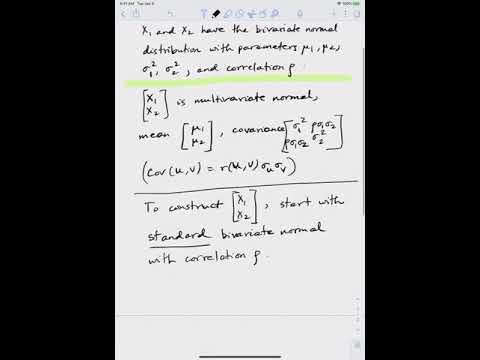 9:41 AM Tue Jan 9
X₁ and X₂ have the bivariate normal
distribution with parameters μ₁, μ₂,
σ₁², σ₂², and correlation ρ
[X₁ X₂] is multivariate normal,
mean [μ₁ μ₂], covariance [σ₁² ρσ₁σ₂ ρσ₁σ₂ σ₂²]
(Cov(u,v) = r(u,v) σᵤσᵥ)
To construct [X₁ X₂], start with
standard bivariate normal
with correlation ρ.